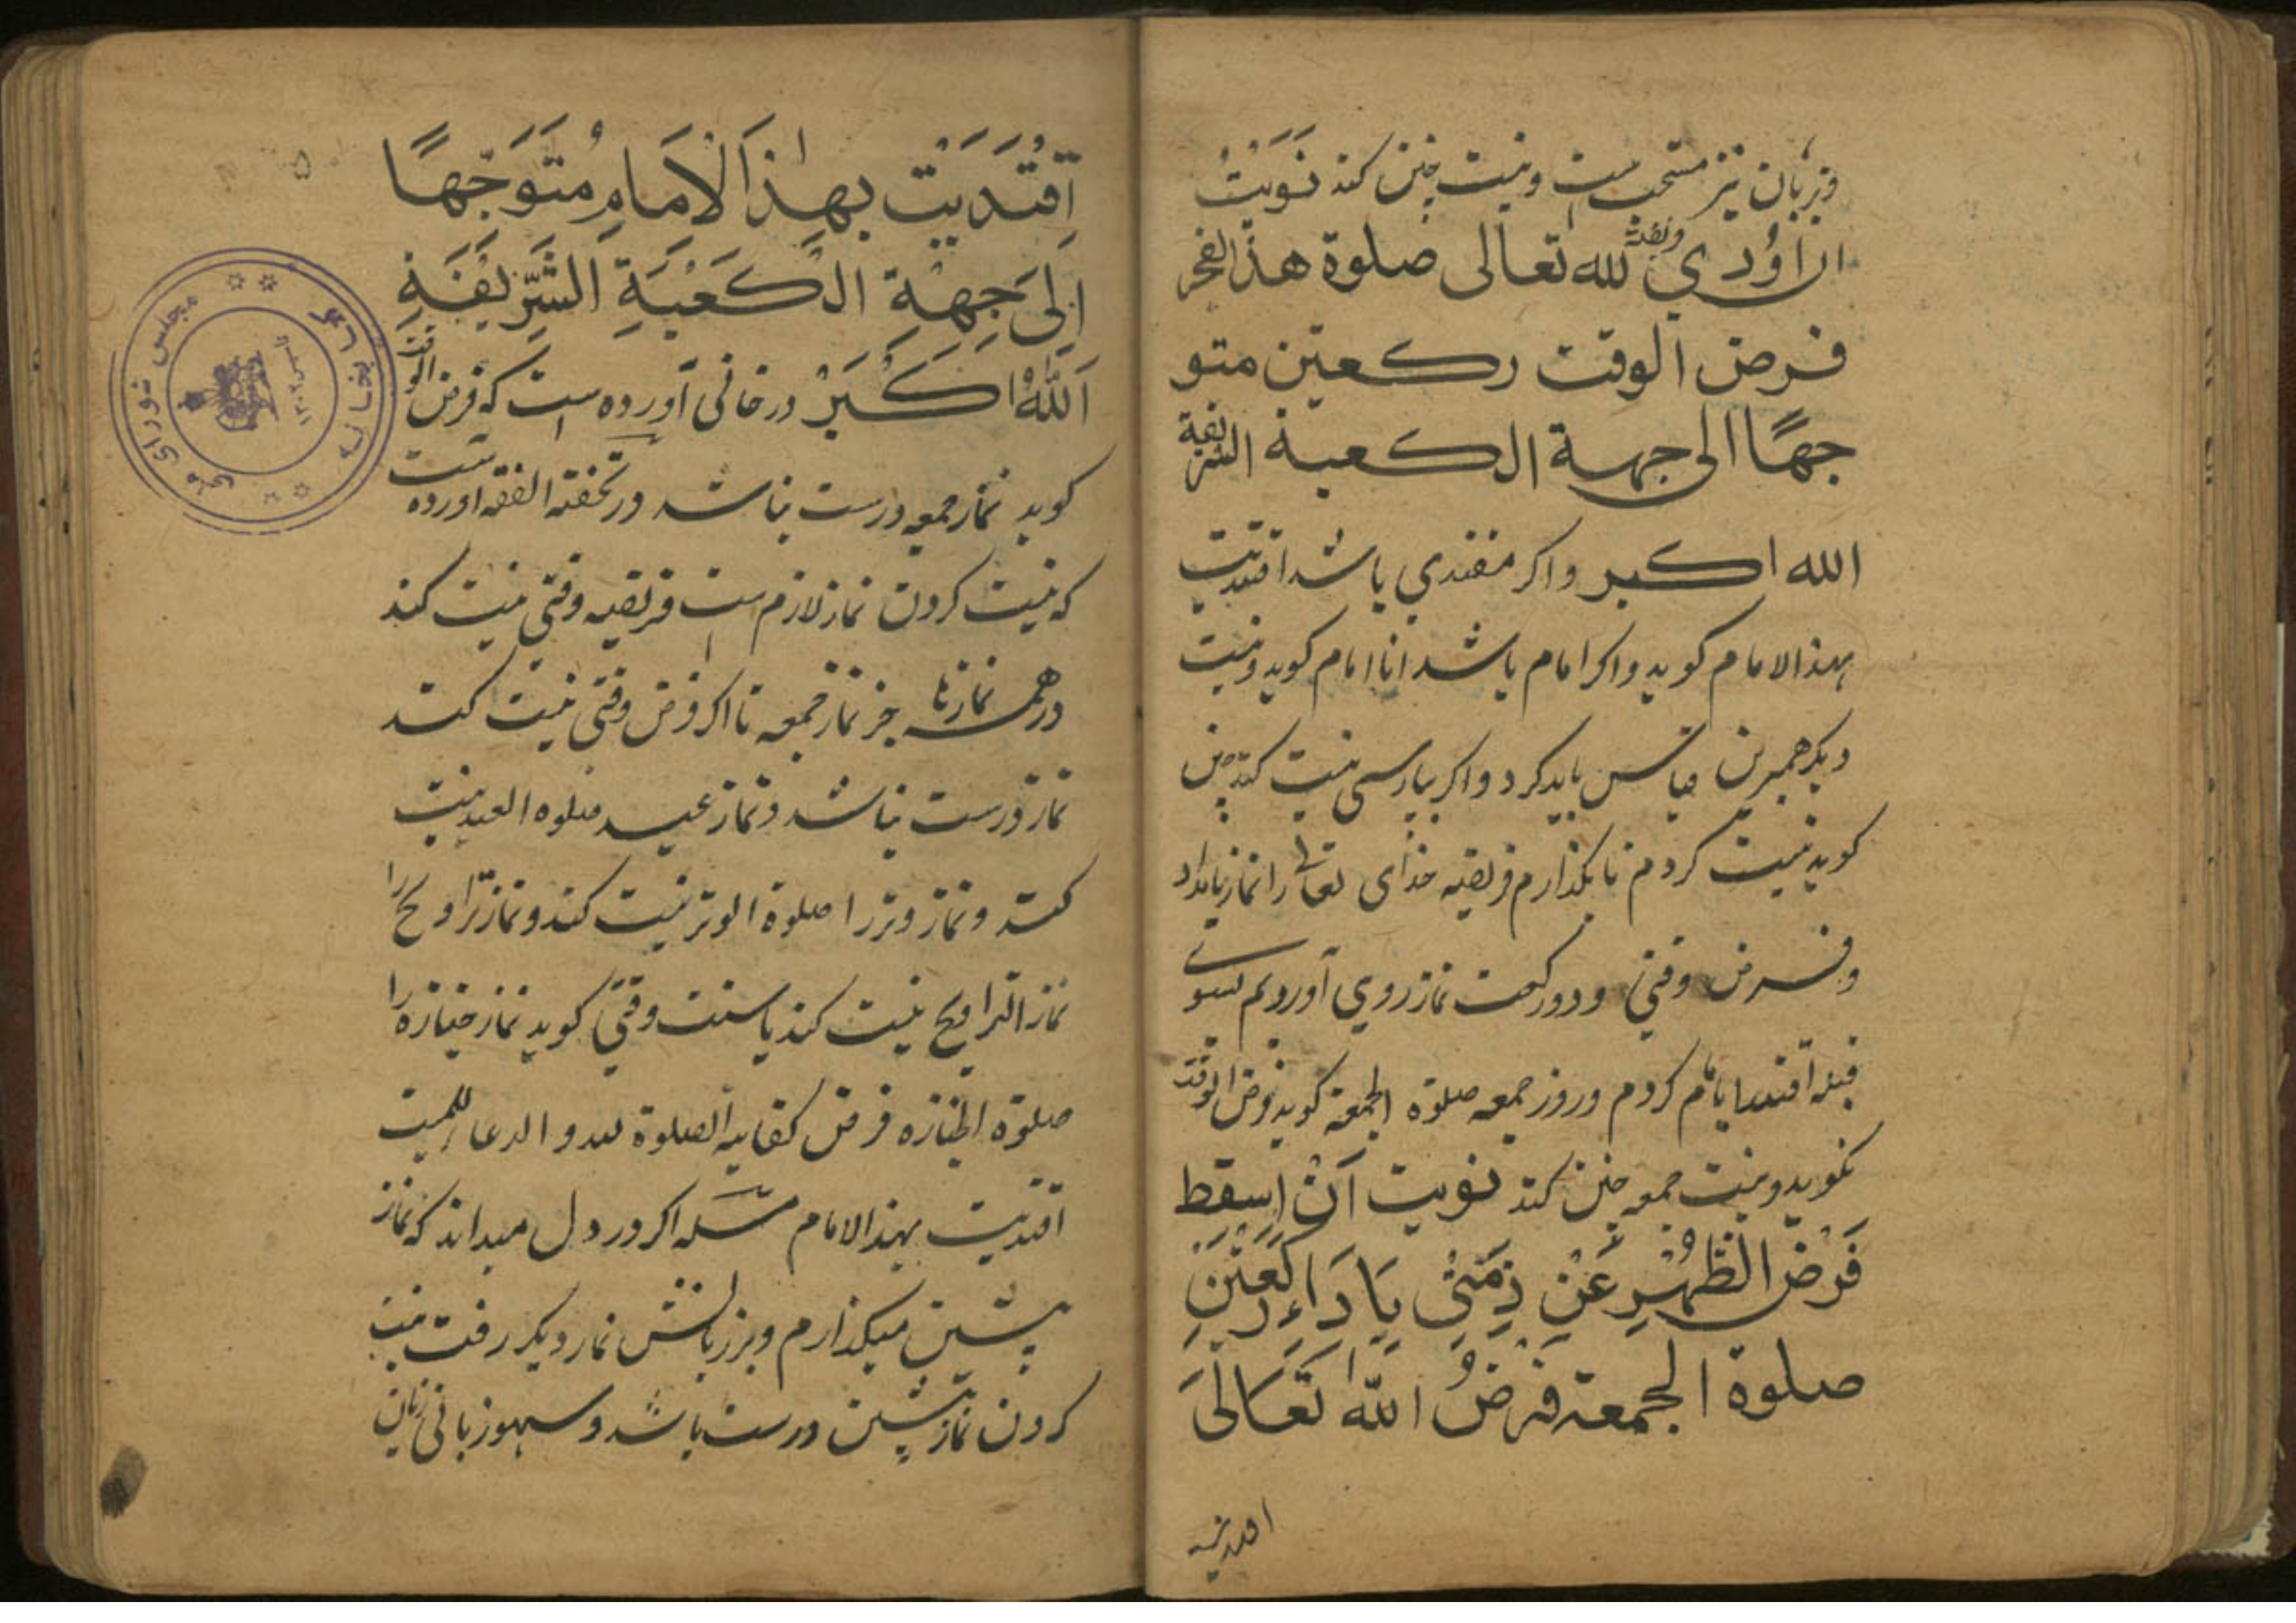 وبزبان نیز مستحب است ونیت چنین کند نَوَیْتُ
ان اُوَدی وبعدت لله تعالی صلوة هذا الفجر
فرض الوقت رکعتین متو
جهًا الی جهة الکعبة الشریفة
الله اکبر واکر مقتدی باشد اقتدیت
بهذا الامام کوید واکر امام باشد انا امام کوید ونیت
دیکر همبرین قیاس باید کرد واکر بپارسی نیت کند چنین
کوید نیت کردم تا بکذارم فریضه خدای تعالی را نماز بامداد
وفرض وقتی ودو رکعت نماز روی آوردم بسوی
قبله اقتدا بامام کردم وروز جمعه صلوة الجمعة کوید فرض الوقت
نکوید ونیت جمعه چنین کند نویت اَنْ اُسقط
فَرْضَ الظُّهْرِ عَنْ ذِمَّتِی بِاَدَاءِ رَکْعَتَیْنِ
صلوة الجمعة فَرْضُ الله تَعَالَی
اقتدیت
اِقْتَدَیْتُ بِهٰذَا الْاِمَامِ مُتَوَجِّهًا
اِلَی جِهَةِ الْکَعْبَةِ الشَّرِیْفَةِ
اَللّٰهُ اَکْبَرْ در خانی آورده است که فرض الوقت
کوید نماز جمعه درست نباشد ور تحفة الفقه اورده است
که نیت کردن نماز لازم است فریضه وقتی نیت کند
در همه نمازها جز نماز جمعه تا اکر فرض وقتی نیت کند
نماز درست نباشد ونماز عید صلوه العید نیت
کند ونماز وتر را صلوة الوتر نیت کند ونماز تراویح را
نماز التراویح نیت کند یا سنت وقتی کوید نماز جنازه را
صلوة الجنازه فرض کفایه الصلوة لله والدعا للمیت
اقتدیت بهذا الامام مسئله اکر در دل میداند که نماز
پیشین میکذارم وبر زبانش نماز دیکر رفت نیت
کردن نماز پیشین درست باشد وسهو زبانی زیان
مجلس شورای ملی
کتابخانه
تاسیس ۱۳۰۲